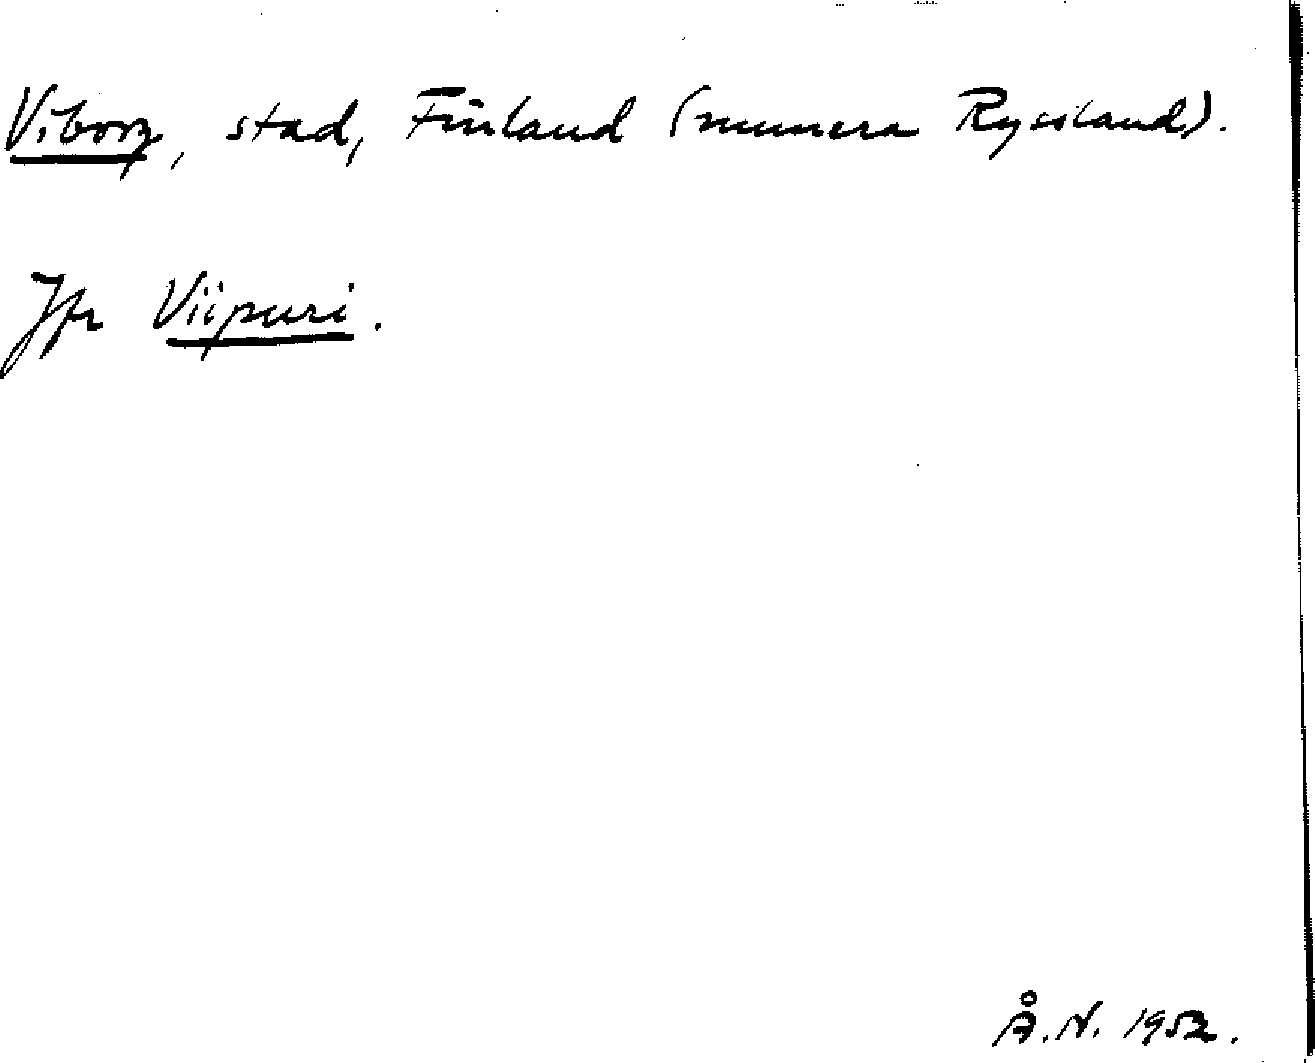 Viborg, stad, Finland (numera Ryssland).
Jfr Viipuri.
Å.N. 1952.